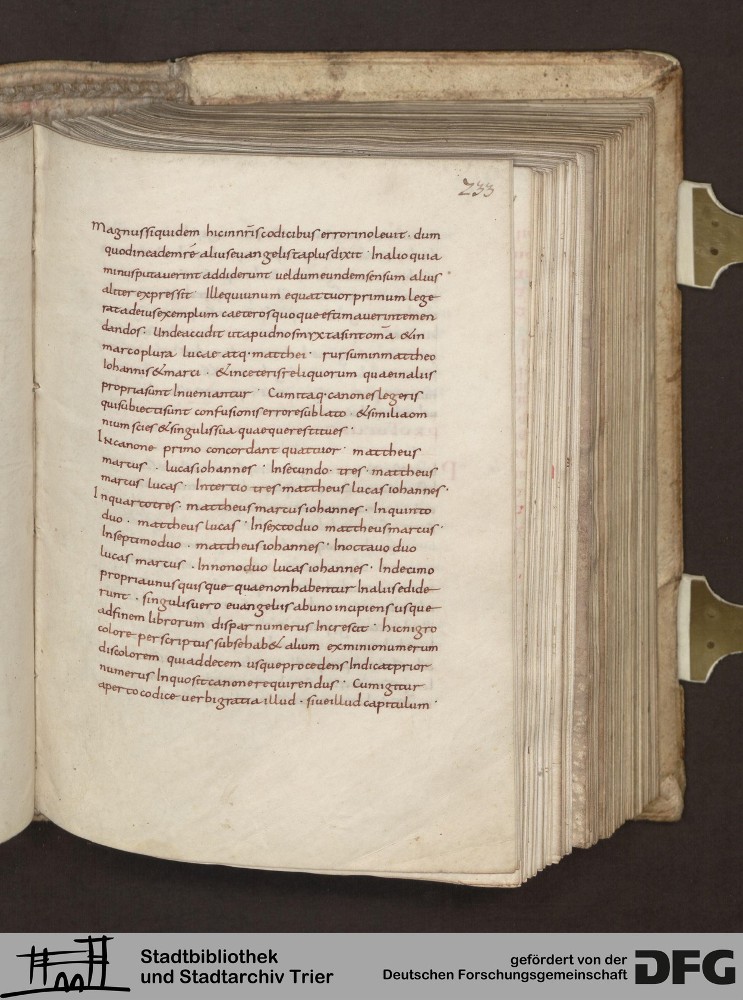 233
Magnus siquidem hic in nr̄is codicibus error inoleuit · dum
quod in eadem rē alius euangelista plus dixit · In alio quia
minus putauerint addiderunt uel dum eundem sensum alius
aliter expressit · Ille qui unum e quattuor primum lege
rat ad eius exemplum caeteros quoque estimauerint emen
dandos · Unde accidit ut apud nos mixta sint om̄a & in
marco plura lucae atq · matthei · rursum in mattheo
Iohannis & marci · & in ceteris reliquorum quae in aliis
propria sunt Inueniantur · Cum itaq · canones legeris
qui subiecti sunt confusionis errore sublato · & similia om
nium scies & singulis sua quaeque restitues ·
In canone primo concordant quattuor · mattheus
marcus · lucas iohannes · In secundo · tres · mattheus
marcus lucas · In tertio tres mattheus lucas iohannes ·
In quarto tres · mattheus marcus iohannes · In quinto
duo · mattheus lucas · In sexto duo mattheus marcus ·
In septimo duo · mattheus iohannes · In octauo duo
lucas marcus · In nono duo lucas iohannes · In decimo
propria unusquisque quae non habentur In aliis edide
runt · singulis uero euangeliis ab uno incipiens usque
ad finem librorum dispar numerus Increscit · hic nigro
colore perscriptus sub se hab& alium ex minio numerum
discolorem qui ad decem usque procedens Indicat prior
numerus In quo sit canone requirendus · Cum igitur
aperto codice uerbi gratia illud · siue illud capitulum ·
Stadtbibliothek
und Stadtarchiv Trier
gefördert von der
Deutschen Forschungsgemeinschaft
DFG